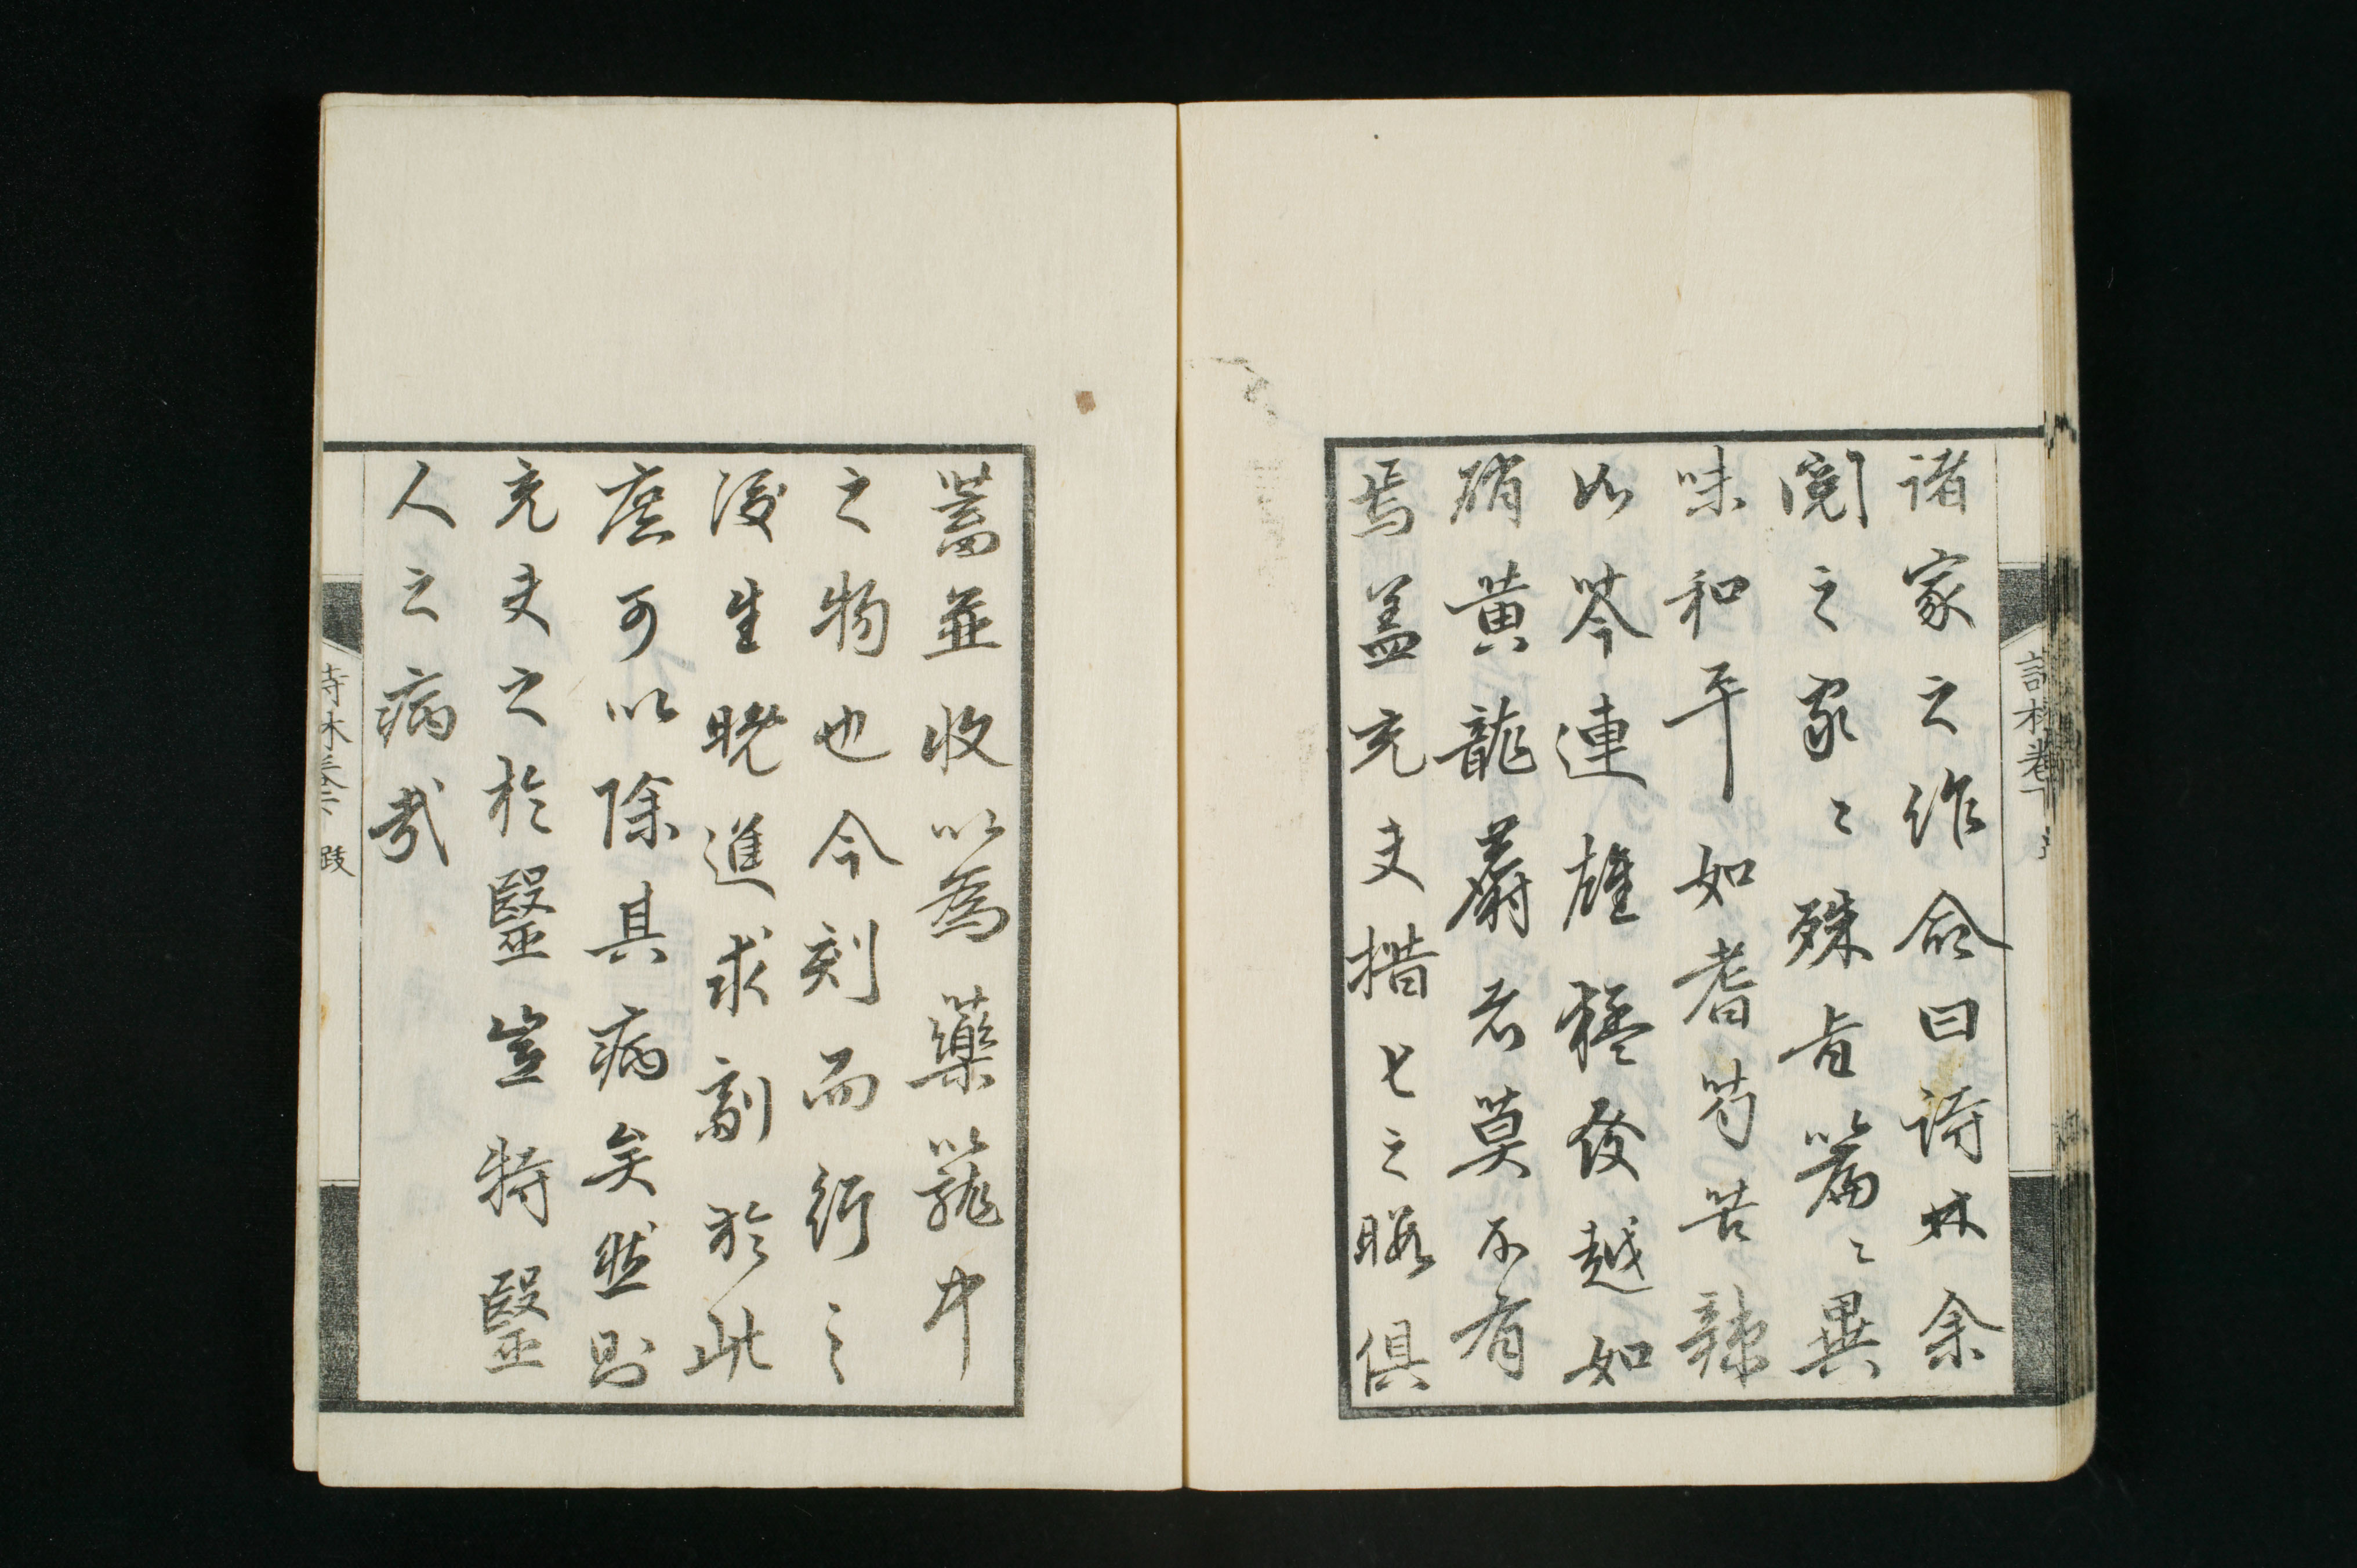 諸家之作命曰詩林余
閱之家〻殊旨篇〻異
味和平如耆芍苦辣
如芩連雄發越如
硝黄龍麝者莫不有
焉蓋充夫措七之暇俱
蓄並收以為藥籠中
之物也今刻而行之
後生晩進求劑於此
庶可以除其病矣然則
充夫之於醫豈特醫
人之病哉
詩林卷下
詩林卷下 跋